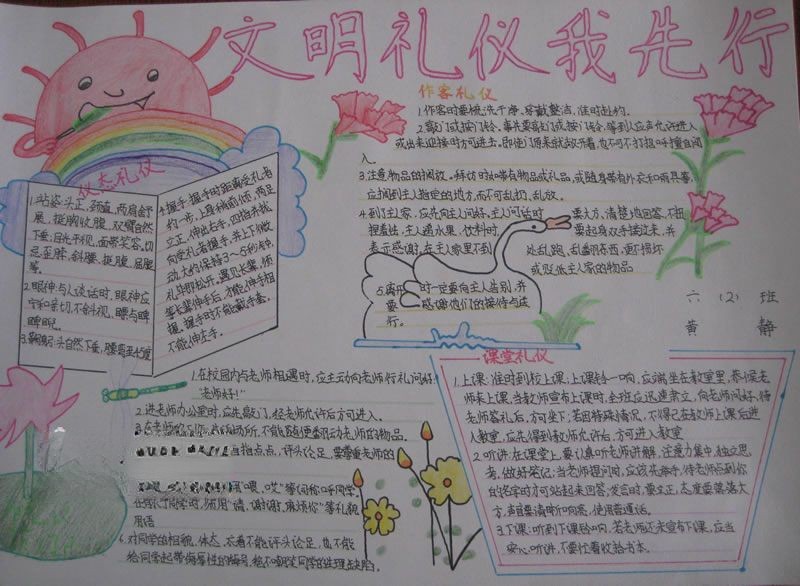 文明礼仪我先行
仪态礼仪
1.站姿:头正,颈直,两肩舒
展,挺胸收腹,双臂自然
下垂;目光平视,面带笑容。切
忌歪脖、斜腰、挺腹、屈腿
等。
2.眼神:与人谈话时,眼神应
3.鞠躬:头自然下垂,
4.握手:握手时距离受礼者
约一步,上身稍前倾,两足
立正,伸出右手,四指并拢
向受礼者握手,并上下微
动,大约保持3~5秒钟,
礼毕即松开。遇见长辈,须
等长辈伸手后,才能伸手相
握。握手时不能戴手套,
不能伸左手。
作客礼仪
1.作客时要梳洗干净,穿戴整洁,准时赴约。
2.敲门或按门铃。事先要敲门或按门铃,等到人应声允许进入
或出来迎接时方可进去。即使门原来就敞开着,也不可不打招呼擅自闯
入。
3.注意物品的搁放。拜访时如带有物品或礼品,或随身带有外衣和雨具等,
应搁到主人指定的地方,而不可乱扔、乱放。
4.到了主家,应先向主人问好,主人问话时要大方,清楚地回答,不扭
捏着怯,主人递水果、饮料时要起身双手接过来,并
表示感谢,在主人家里不到处乱跑、乱翻东西,更不损坏
或贬低主人家的物品
5.离开时一定要向主人告别,并
要感谢他们的接待与送
行。
六(2)班
黄静
1.在校园内与老师相遇时,应主动向老师行礼问好:"
老师好!"
2.进老师办公室时,应先敲门,经老师允许后方可进入。
不能随便翻动老师的物品。
指指点点,评头论足,要尊重老师的
"喂,哎"等词称呼同学。
"请、谢谢、麻烦你"等礼貌
用语
6.对同学的相貌、体态、衣着不能评头论足,也不能
给同学起带侮辱性的绰号,绝不嘲笑同学的生理缺陷。
课堂礼仪
1.上课:准时到校上课;上课铃一响,应端坐在教室里,恭候老
师来上课,当教师宣布上课时,全班应迅速肃立,向老师问好,待
老师答礼后,方可坐下;若因特殊情况,不得已在教师上课后进
入教室,应先得到教师允许后,方可进入教室
2.听讲:在课堂上,要认真听老师讲解,注意力集中,独立思
考,做好笔记;当老师提问时,应该先举手,待老师点到你
的名字时方可站起来回答,发言时,要立正,态度要落落大
方,声音要清晰响亮,使用普通话。
3.下课:听到下课铃响,若老师还未宣布下课,应当
安心听讲,不要忙着收拾书本。